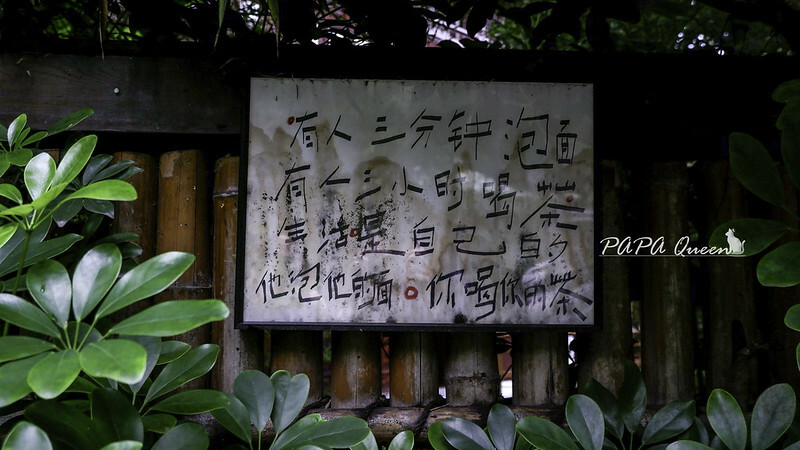 有人三分钟泡面
有人三小时喝茶
生活是自己的
他泡他的面。你喝你的茶
PAPA Queen